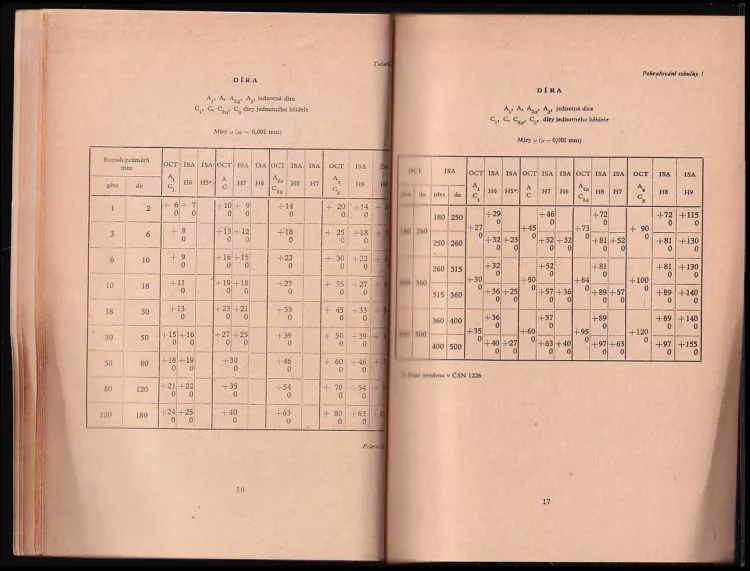 Tabulk
DÍRA
A₁, A, A₂ₐ, A₃, jednotná díra
C₁, C, C₂ₐ, C₃ díry jednotného hřídele
Míry μ (μ = 0,001 mm)
Rozsah průměrů mm OCT ISA ISA OCT ISA ISA OCT ISA ISA OCT ISA
přes do A₁ C₁ H6 H5*) A C H7 H6 A₂ₐ C₂ₐ H8 H7 A₃ C₃ H8
1 2 + 6 0 + 7 0 +10 0 + 9 0 +14 0 + 20 0 +14 0
3 6 + 8 0 +13 0 +12 0 +18 0 + 25 0 +18 0
6 10 + 9 0 +16 0 +15 0 +22 0 + 30 0 +22 0
10 18 +11 0 +19 0 +18 0 +27 0 + 35 0 +27 0
18 30 +13 0 +23 0 +21 0 +33 0 + 45 0 +33 0
30 50 +15 0 +16 0 +27 0 +25 0 +39 0 + 50 0 +39 0
50 80 +18 0 +19 0 +30 0 +46 0 + 60 0 +46 0
80 120 +21 0 +22 0 +35 0 +54 0 + 70 0 +54 0
120 180 +24 0 +25 0 +40 0 +63 0 + 80 0 +63 0
16
Pokračování tabulky 1
DÍRA
A₁, A, A₂ₐ, A₃, jednotná díra
C₁, C, C₂ₐ, C₃, díry jednotného hřídele
Míry μ (μ = 0,001 mm)
OCT ISA OCT ISA ISA OCT ISA ISA OCT ISA ISA OCT ISA ISA
přes do přes do A₁ C₁ H6 H5*) A C H7 H6 A₂ₐ C₂ₐ H8 H7 A₃ C₃ H8 H9
180 250 +29 0 +46 0 +72 0 +72 0 +115 0
180 260 +27 0 +45 0 +73 0 + 90 0
250 260 +32 0 +23 0 +52 0 +32 0 +81 0 +52 0 +81 0 +130 0
260 315 +32 0 +52 0 +81 0 +81 0 +130 0
360 +30 0 +50 0 +84 0 +100 0
315 360 +36 0 +25 0 +57 0 +36 0 +89 0 +57 0 +89 0 +140 0
360 400 +36 0 +57 0 +89 0 +89 0 +140 0
500 +35 0 +60 0 +95 0 +120 0
400 500 +40 0 +27 0 +63 0 +40 0 +97 0 +63 0 +97 0 +155 0
uvedeno v ČSN 1226
17